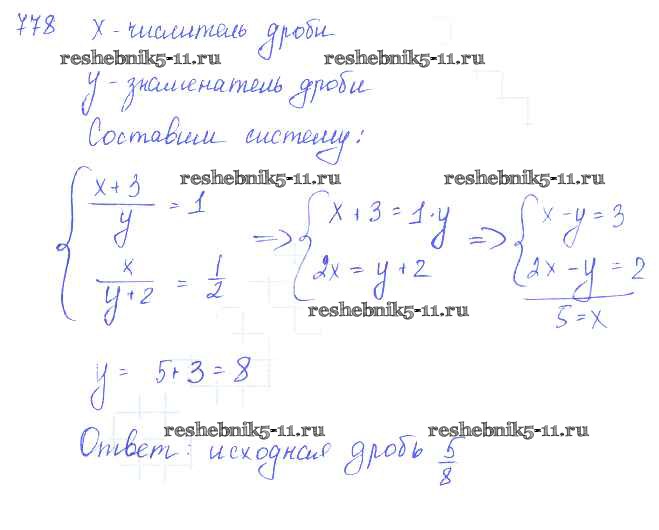 778 x - числитель дроби
reshebnik5-11.ru reshebnik5-11.ru
y - знаменатель дроби
Составим систему:
reshebnik5-11.ru reshebnik5-11.ru
{ (x+3)/y = 1 => { x + 3 = 1·y => { x - y = 3
{ x/(y+2) = 1/2 { 2x = y + 2 { 2x - y = 2
reshebnik5-11.ru 5 = x
y = 5+3 = 8
reshebnik5-11.ru reshebnik5-11.ru
Ответ: исходная дробь 5/8